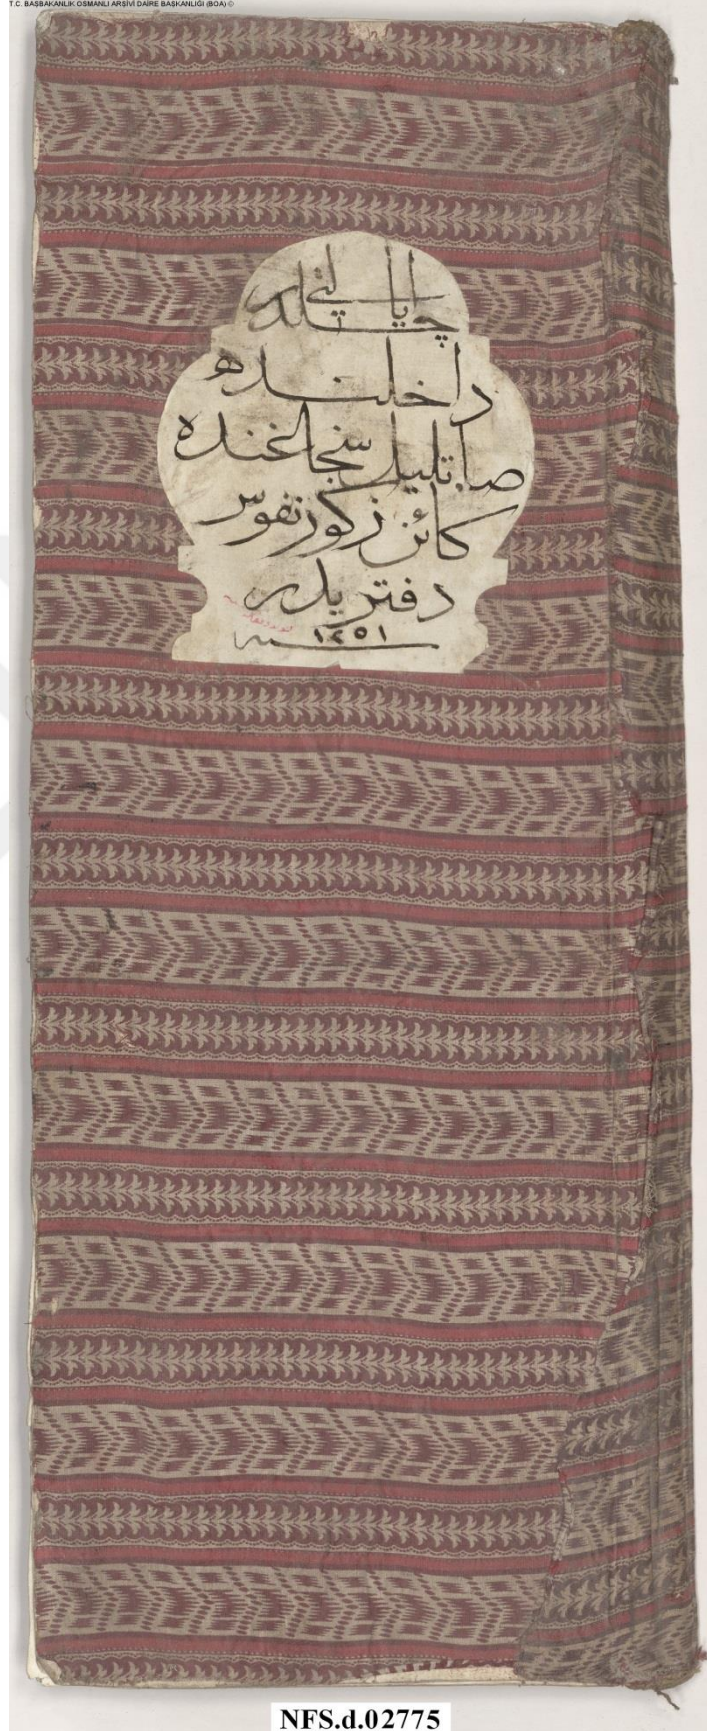 T.C. BAŞBAKANLIK OSMANLI ARŞİVİ DAİRE BAŞKANLIĞI (BOA) ©
چلدر ایالتی
داخلنده
صاتلیل سنجاغنده
کائن زکور نفوس
دفتریدر
سنه ١٢٥١
NFS.d.02775